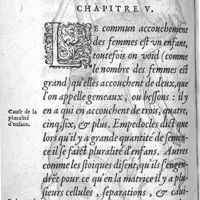 CHAPITRE V.
LE commun accouchement
des femmes est vn enfant,
toutefois on void (comme
le nombre des femmes est
grand) qu'elles accouchent de deux, que
l'on appelle gemeaux, ou bessons : il y
en a qui en accouchent de trois, quatre,
cinq, six, & plus. Empedocles dict que
lors qu'il y a grande quantité de semence
il se faict pluralité d'enfans. Autres
comme les stoiques disent, qu'ils s'engendrent
pour ce qu'en la matrice il y a plusieurs
cellules, separations, & caui-
Cause de la
pluralité
d'enfans.